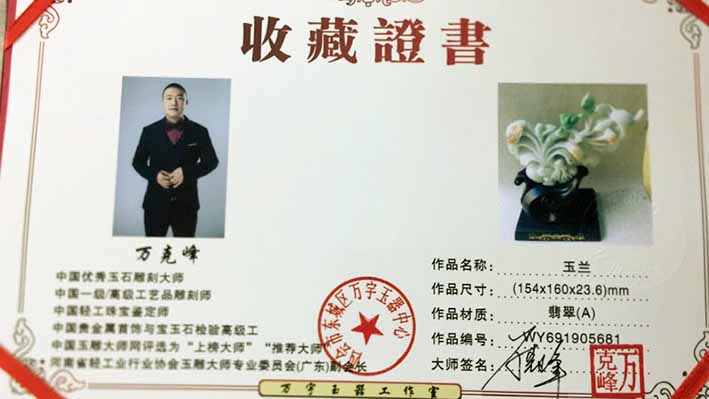 收藏證書
万克峰
中国优秀玉石雕刻大师
中国一级/高级工艺品雕刻师
中国轻工珠宝鉴定师
中国贵金属首饰与宝玉石检验高级工
中国玉雕大师网评选为“上榜大师” “推荐大师”
河南省轻工业行业协会玉雕大师专业委员会(广东)副会长
作品名称: 玉兰
作品尺寸: (154x160x23.6)mm
作品材质: 翡翠(A)
作品编号: WY691905681
大师签名: 万克峰
四会市东城区万宇玉器中心
万克峰
万宇玉器工作室